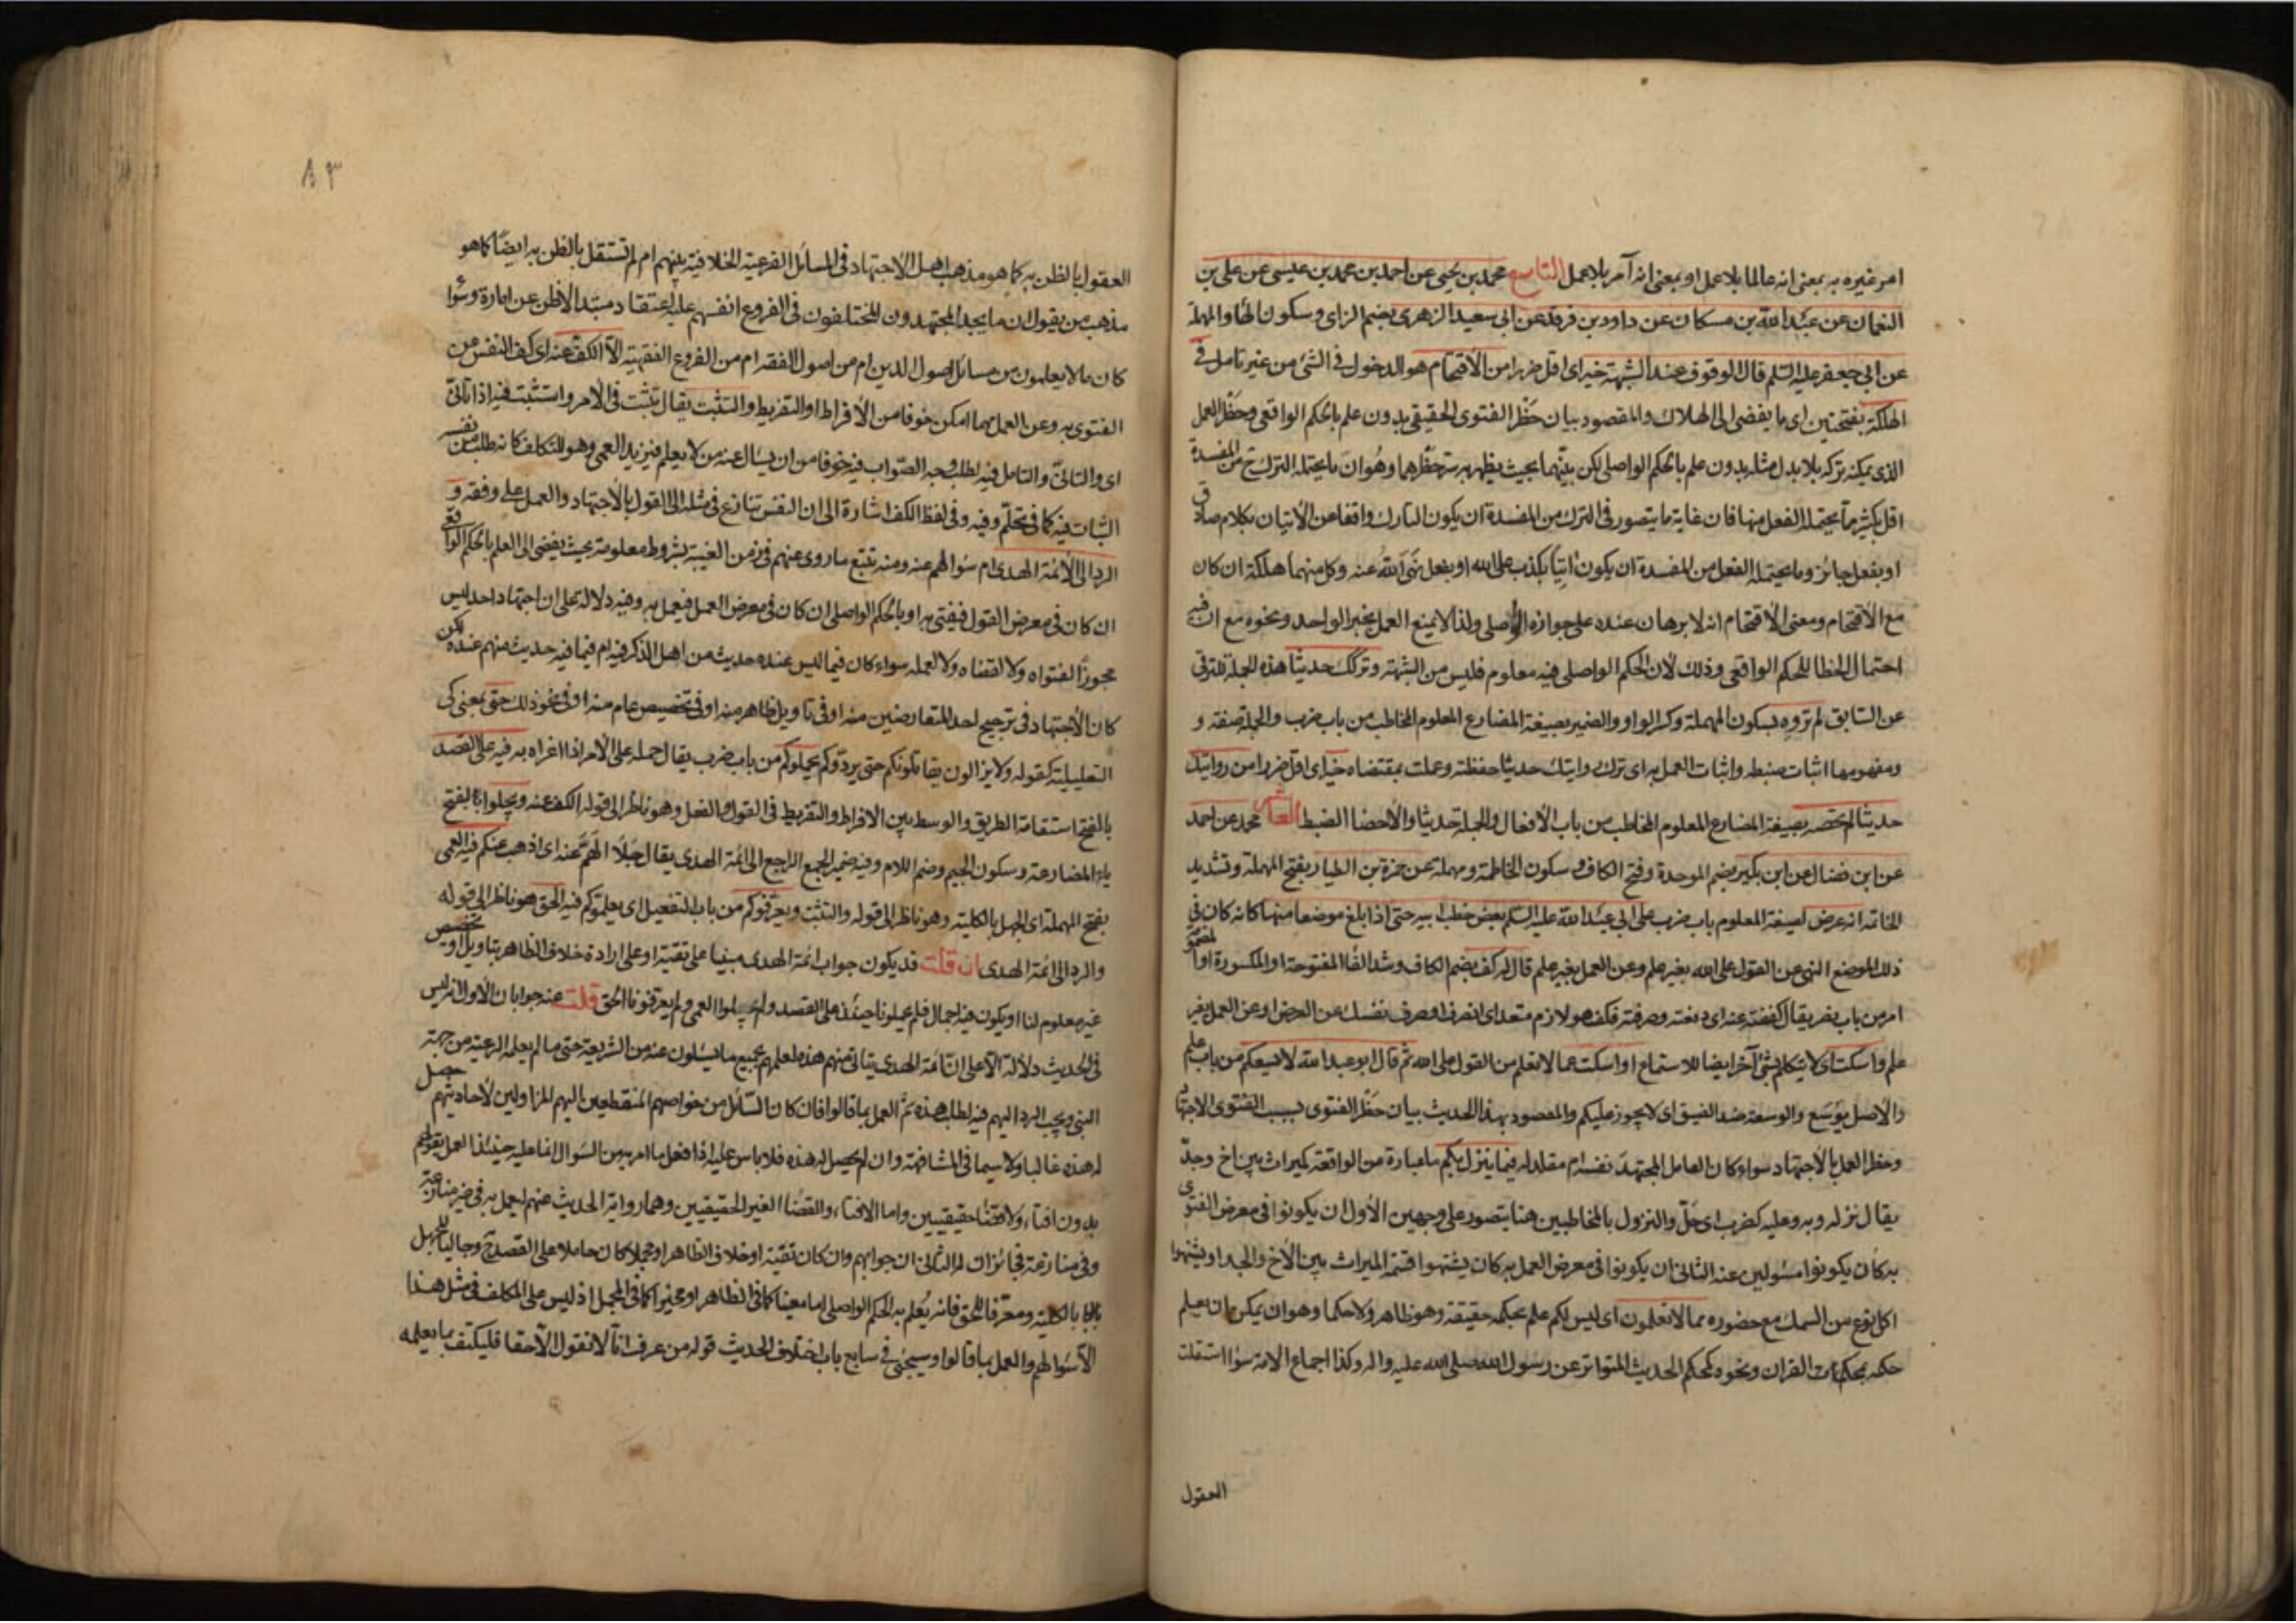 امر غيره به بمعنى انه عالما بلا عمل او بمعنى انه آمر بلا عمل التاسع محمد بن يحيى عن احمد بن محمد بن عيسى عن على بن
النعمان عن عبد الله بن مسكان عن داود بن فرقد عن ابى سعيد الزهرى بضم الزاى وسكون الهاء والمهملة
عن ابى جعفر عليه السلم قال الوقوف عند الشبهة خير اى اقل ضررا من الاقتحام هو الدخول فى الشئ من غير تامل فى
الهلكة بفتحتين اى ما يفضى الى الهلاك والمقصود بيان حظر الفتوى الحقيقى بدون علم بالحكم الواقعى وحظر العمل
الذى يمكن تركه بلا بدل مثله بدون علم بالحكم الواصلى لكن بينهما بحيث يظهر به سر حظرهما وهو ان ما يحتمله الترك ح من المفسدة
اقل بكثير مما يحتمله الفعل منها فان غاية ما يتصور فى الترك من المفسدة ان يكون التارك واقفا عن الاتيان بكلام صادق
او بفعل جائز وما يحتمله الفعل من المفسدة ان يكون اتيا بكذب على الله او بفعل نهى الله عنه وكل منهما هلكة ان كان
مع الاقتحام ومعنى الاقتحام انه لا برهان عنده على جوازه الواصلى ولذا لا يمنع العمل بخبر الواحد ونحوه مع ان فيه
احتمال الخطا للحكم الواقعى وذلك لان الحكم الواصلى فيه معلوم فليس من الشبهة وتركك حديثا هذه الجملة للترقى
عن السابق لم تروه بسكون المهملة وكسر الواو والضمير بصيغة المضارع المعلوم المخاطب من باب ضرب والجملة صفة و
مفهومها اثبات ضبطه واثبات العمل به اى ترك وايتك حديثا حفظته وعملت بمقتضاه خير اى اقل ضررا من روايتك
حديثا لم تحصه بصيغة المضارع المعلوم المخاطب من باب الافعال والجملة حديثا والاحصا الضبط العاشر محمد عن احمد
عن ابن فضال عن ابن بكير بضم الموحدة وفتح الكاف وسكون الخاطمة ومهملة عن حمزة بن الطيار بفتح المهملة وتشديد
الخاتمة انه عرض لصيغة المعلوم باب ضرب على ابى عبد الله عليه السلم بعض خطب ابيه حتى اذا بلغ موضعا منها كانه كان فى
ذلك الموضع النهى عن القول على الله بغير علم وعن العمل بغير علم قال له كف بضم الكاف وشد الفا المفتوحة او المكسورة او المضمو
امر من باب نصر يقال كففته عنه اى دفعته وصرفته فكف هو لازم متعد اى انصرف او صرف نفسك عن العرض او عن العمل بغير
علم واسكت اى لا تتكلم بشئ آخر ايضا للاستماع او اسكت عما لا تعلم من القول على الله ثم قال ابو عبد الله لا يسعكم من باب علم
والاصل يوسع والوسعة ضد الضيق اى لا يجوز عليكم والمقصود بهذا الحديث بيان حظر الفتوى بسبب الفتوى الاجتها
وحظر العمل بالاجتهاد سواء كان العامل المجتهد نفسه ام مقلدا له فيما ينزل بكم ما عبارة من الواقعة كميراث بين اخ وجد
يقال نزله وبه وعليه كضرب اى حل والنزول بالمخاطبين هنا يتصور على وجهين الاول ان يكونوا فى معرض الفتوى
به كان يكونوا مسئولين عنه الثانى ان يكونوا فى معرض العمل به كان يشتهوا قسمة الميراث بين الاخ والجد او يشتهوا
اكل نوع من السمك مع حضوره مما لا تعلمون اى ليس لكم علم بحكمه حقيقة وهو ظاهر ولا حكما وهو ان يمكن ان يعلم
حكمه بمحكمات القران ونحوه كمحكم الحديث المتواتر عن رسول الله صلى الله عليه واله وكذا اجماع الامة سوا استقلت
العقول
٨٣
العقول بالظن به كما هو مذهب اهل الاجتهاد فى المسائل الفرعية الخلافية بينهم ام لم تستقل بالظن به ايضا كما هو
مذهب من يقول ان ما يجد المجتهدون المختلفون فى الفروع انفسهم عليه اعتقاد مبتدا لا ظن عن امارة وسوا
كان ما لا يعلمون من مسائل اصول الدين ام من اصول الفقه ام من الفروع الفقهية الا الكف عنه اى كف النفس عن
الفتوى به وعن العمل مهما امكن خوفا من الافراط او التفريط والتثبت يقال تثبت فى الامر واستثبت فيه اذا تانى
اى والتانى والتامل فيه لطلب وجه الصواب فيه خوفا من ان يسال عنه من لا يعلم فيزيد العمى وهو للتكلف كانه طلب من نفسه
الثبات فيه كما فى تحلم وفيه وفى لفظ الكف اشارة الى ان النفس تنازع فى مثله الى القول بالاجتهاد والعمل على وفقه و
الرد الى الائمة الهدى ام سؤالهم عنه ومنه تتبع ما روى عنهم فى زمن الغيبة بشروط معلومة بحيث يفضى الى العلم بالحكم الواقعى
ان كان فى معرض القول فيفتى به او بالحكم الواصلى ان كان فى معرض العمل فيعمل به وفيه دلالة على ان اجتهاد احد ليس
مجوزا لفتواه ولا لقضاه ولا لعمله سواء كان فيما ليس عنده حديث من اهل الذكر فيه ام فيما فيه حديث منهم عنده لكن
كان الاجتهاد فى ترجيح احد المتعارضين منه او فى تاويل ظاهر منه او فى تخصيص عام منه او فى نحو ذلك حتى بمعنى كى
التعليلية كقوله ولا يزالون يقاتلونكم حتى يردوكم يحملوكم من باب ضرب يقال حمله على الامر اذا اغراه به فيه على القصد
بالفتح استقامة الطريق والوسط بين الافراط والتفريط فى القول والفعل وهو ناظر الى قوله الكف عنه ويجلوا بفتح
ياء المضارعة وسكون الجيم وضم اللام وفيه ضمير الجمع الراجع الى ائمة الهدى يقال جلا الهم عنه اى اذهب عنكم فيه العمى
بفتح المهملة اى الجهل بالكلية وهو ناظر الى قوله والتثبت ويعرفوكم من باب التفعيل اى يعلموكم فيه الحق هو ناظر الى قوله
والرد الى ائمة الهدى ان قلت قد يكون جواب ائمة الهدى مبنيا على تقية او على ارادة خلاف الظاهر بتاويل او تخصيص
غير معلوم لنا او يكون فيه اجمال فلم يحملونا حينئذ على القصد ولم يجلوا العمى ولم يعرفونا الحق قلت عنه جوابان الاول انه ليس
فى الحديث دلالة الا على ان ائمة الهدى يتاتى منهم هذه لعلمهم بجميع ما يسئلون عنه من الشريعة حتى ما لم يعلمه الرعية من جهة
النبى ويجب الرد اليهم فيه لطلب هذه ثم العمل بما قالوا فان كان السائل من خواصهم المنقطعين اليهم المزاولين لاحاديثهم حصل
له هذه غالبا ولا سيما فى المشافهة وان لم يحصل له هذه فلا باس عليه اذا فعل ما امر به من السؤال انما عليه حينئذ العمل بقولهم
بدون افتاء ولا قضا حقيقيين واما الافتاء والقضا الغير الحقيقيين وهما رواية الحديث عنهم ليعمل به فى غير منازعة
وفى منازعة فجائزان له الثانى ان جوابهم وان كان تقية او خلاف الظاهر او مجملا كان حاملا على القصد ح وجاليا للجهل
بالكلية ومعرفا للحق فانه يعلم به الحكم الواصلى اما معينا كما فى الظاهر او مخيرا كما فى المجمل اذ ليس على المكلف فى مثل هذا
الا سؤالهم والعمل بما قالوا وسيجئ فى سابع باب اختلاف الحديث قوله من عرف انا لا نقول الا حقا فليكتف بما يعلمه